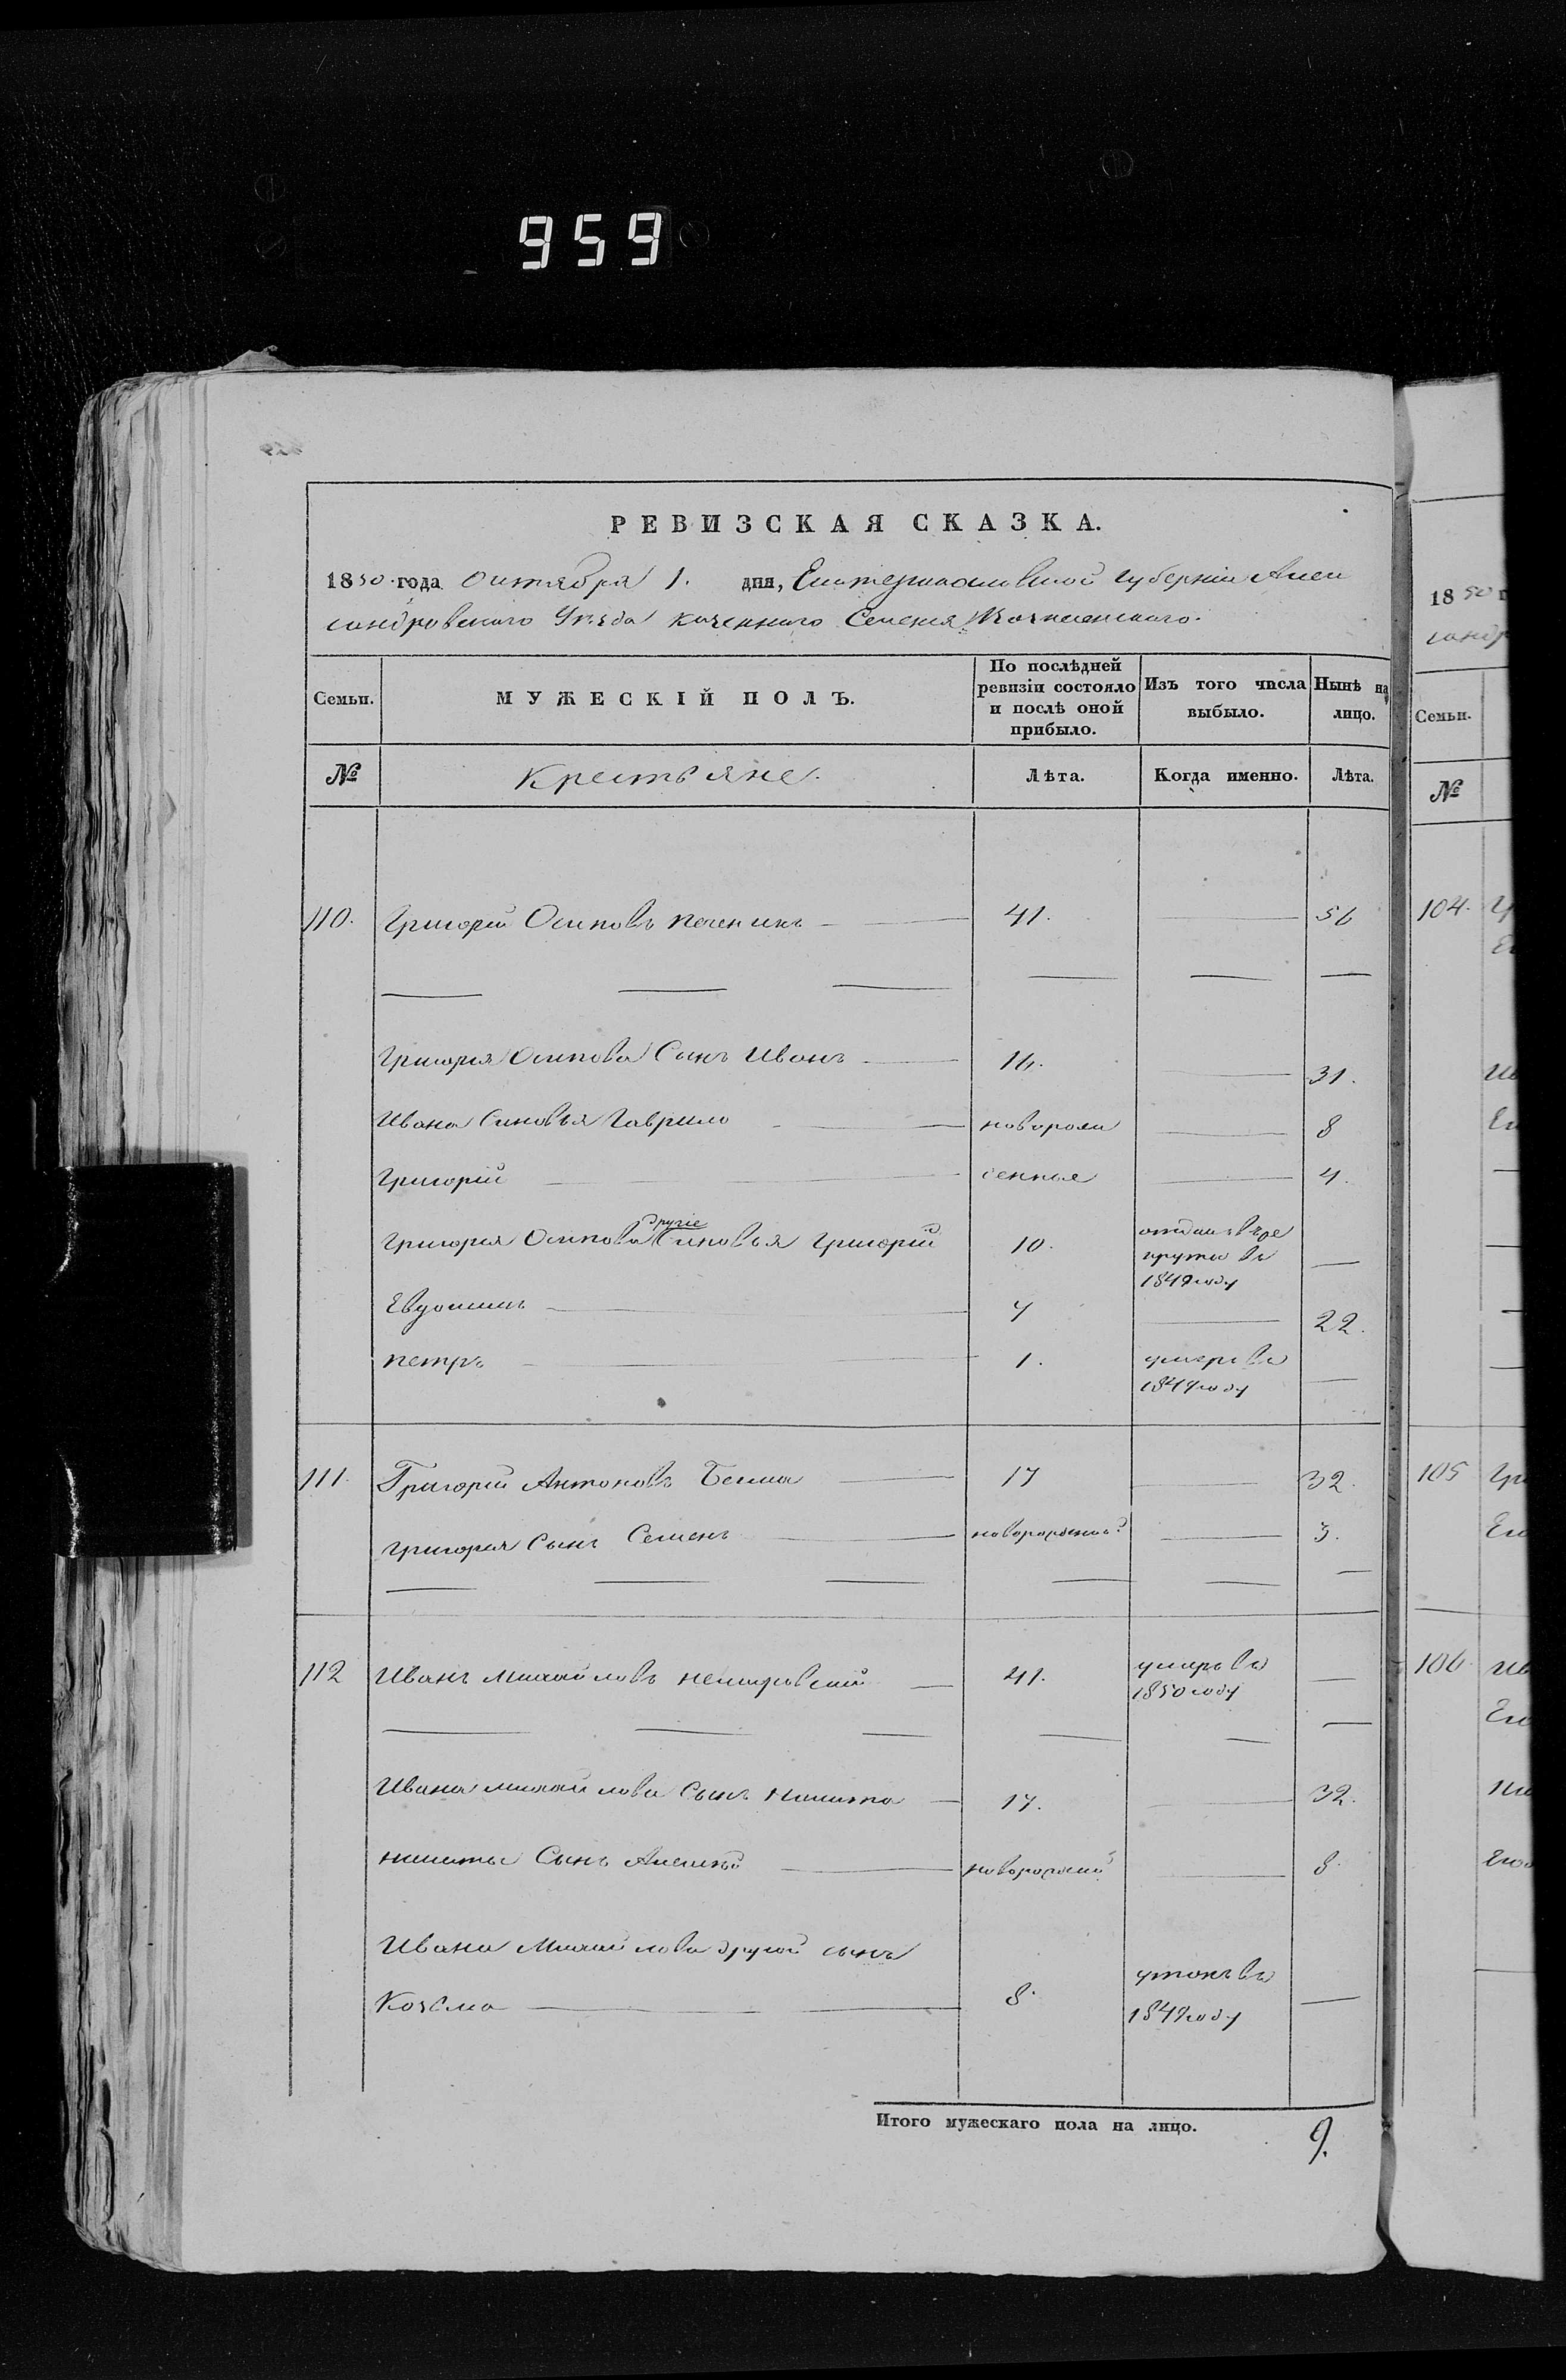 959
РЕВИЗСКАЯ СКАЗКА.
1850 года Октября 1. дня, Екатеринославской губерніи Алек
сандровского Уезда казенного Селенія
Семьи. МУЖЕСКІЙ ПОЛЪ. По послѣдней ревизіи состояло и послѣ оной прибыло. Изъ того числа выбыло. Нынѣ на лицо.
№ Крестьяне. Лѣта. Когда именно. Лѣта.
110. Григорій Осиповъ Печеникъ 41. 56
Григорія Осипова Сынъ Иванъ 16. 31.
Ивана Синовья Гаврило новорож 8
Григорій денные 4.
Григорія Осипова другіе Синовья Григорій 10. отдан въ ре
крути въ
1849 году
Евдокимъ 7 22.
Петръ 1. умеръ въ
1849 году
111. Григорій Антоновъ Бегма 17 32.
Григорія Сынъ Семенъ новорожденый 3.
112 Иванъ Михайловъ Немировскій 41. умеръ въ
1850 году
Ивана Михайлова Сынъ Никита 17. 32.
Никиты Сынъ Алексѣй новорожденый 8.
Ивана Михайлова другой сынъ
Козьма 8. утонъ въ
1849 году
Итого мужескаго пола на лицо. 9.
1850 г
санд
Семьи.
№
104. Гр
Ег
Ив
Ег
105 Гр
Его
106 Ив
Его
Ни
Его